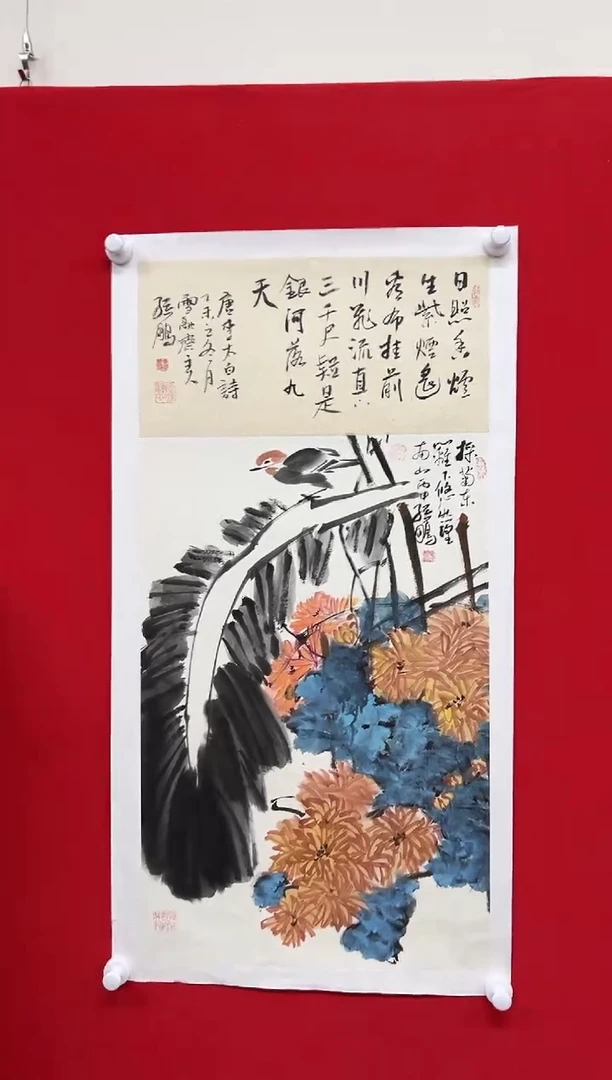 日照香爐
生紫煙遙
看布挂前
川飛流直下
三千尺疑是
銀河落九
天
唐李太白詩
丁未之冬月
雪融齋主人
張鵬
採菊東
籬下悠然望
南山丙申張鵬